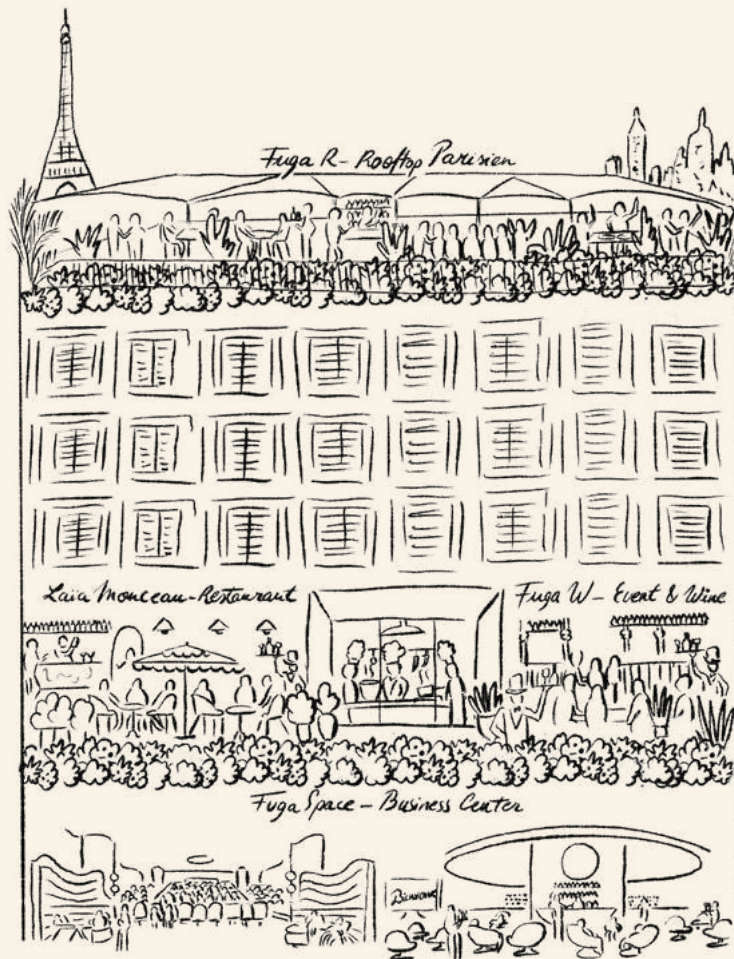 Fuga R – Rooftop Parisien
Laïa Monceau – Restaurant
Fuga W – Event & Wine
Fuga Space – Business Center
Bienvenue